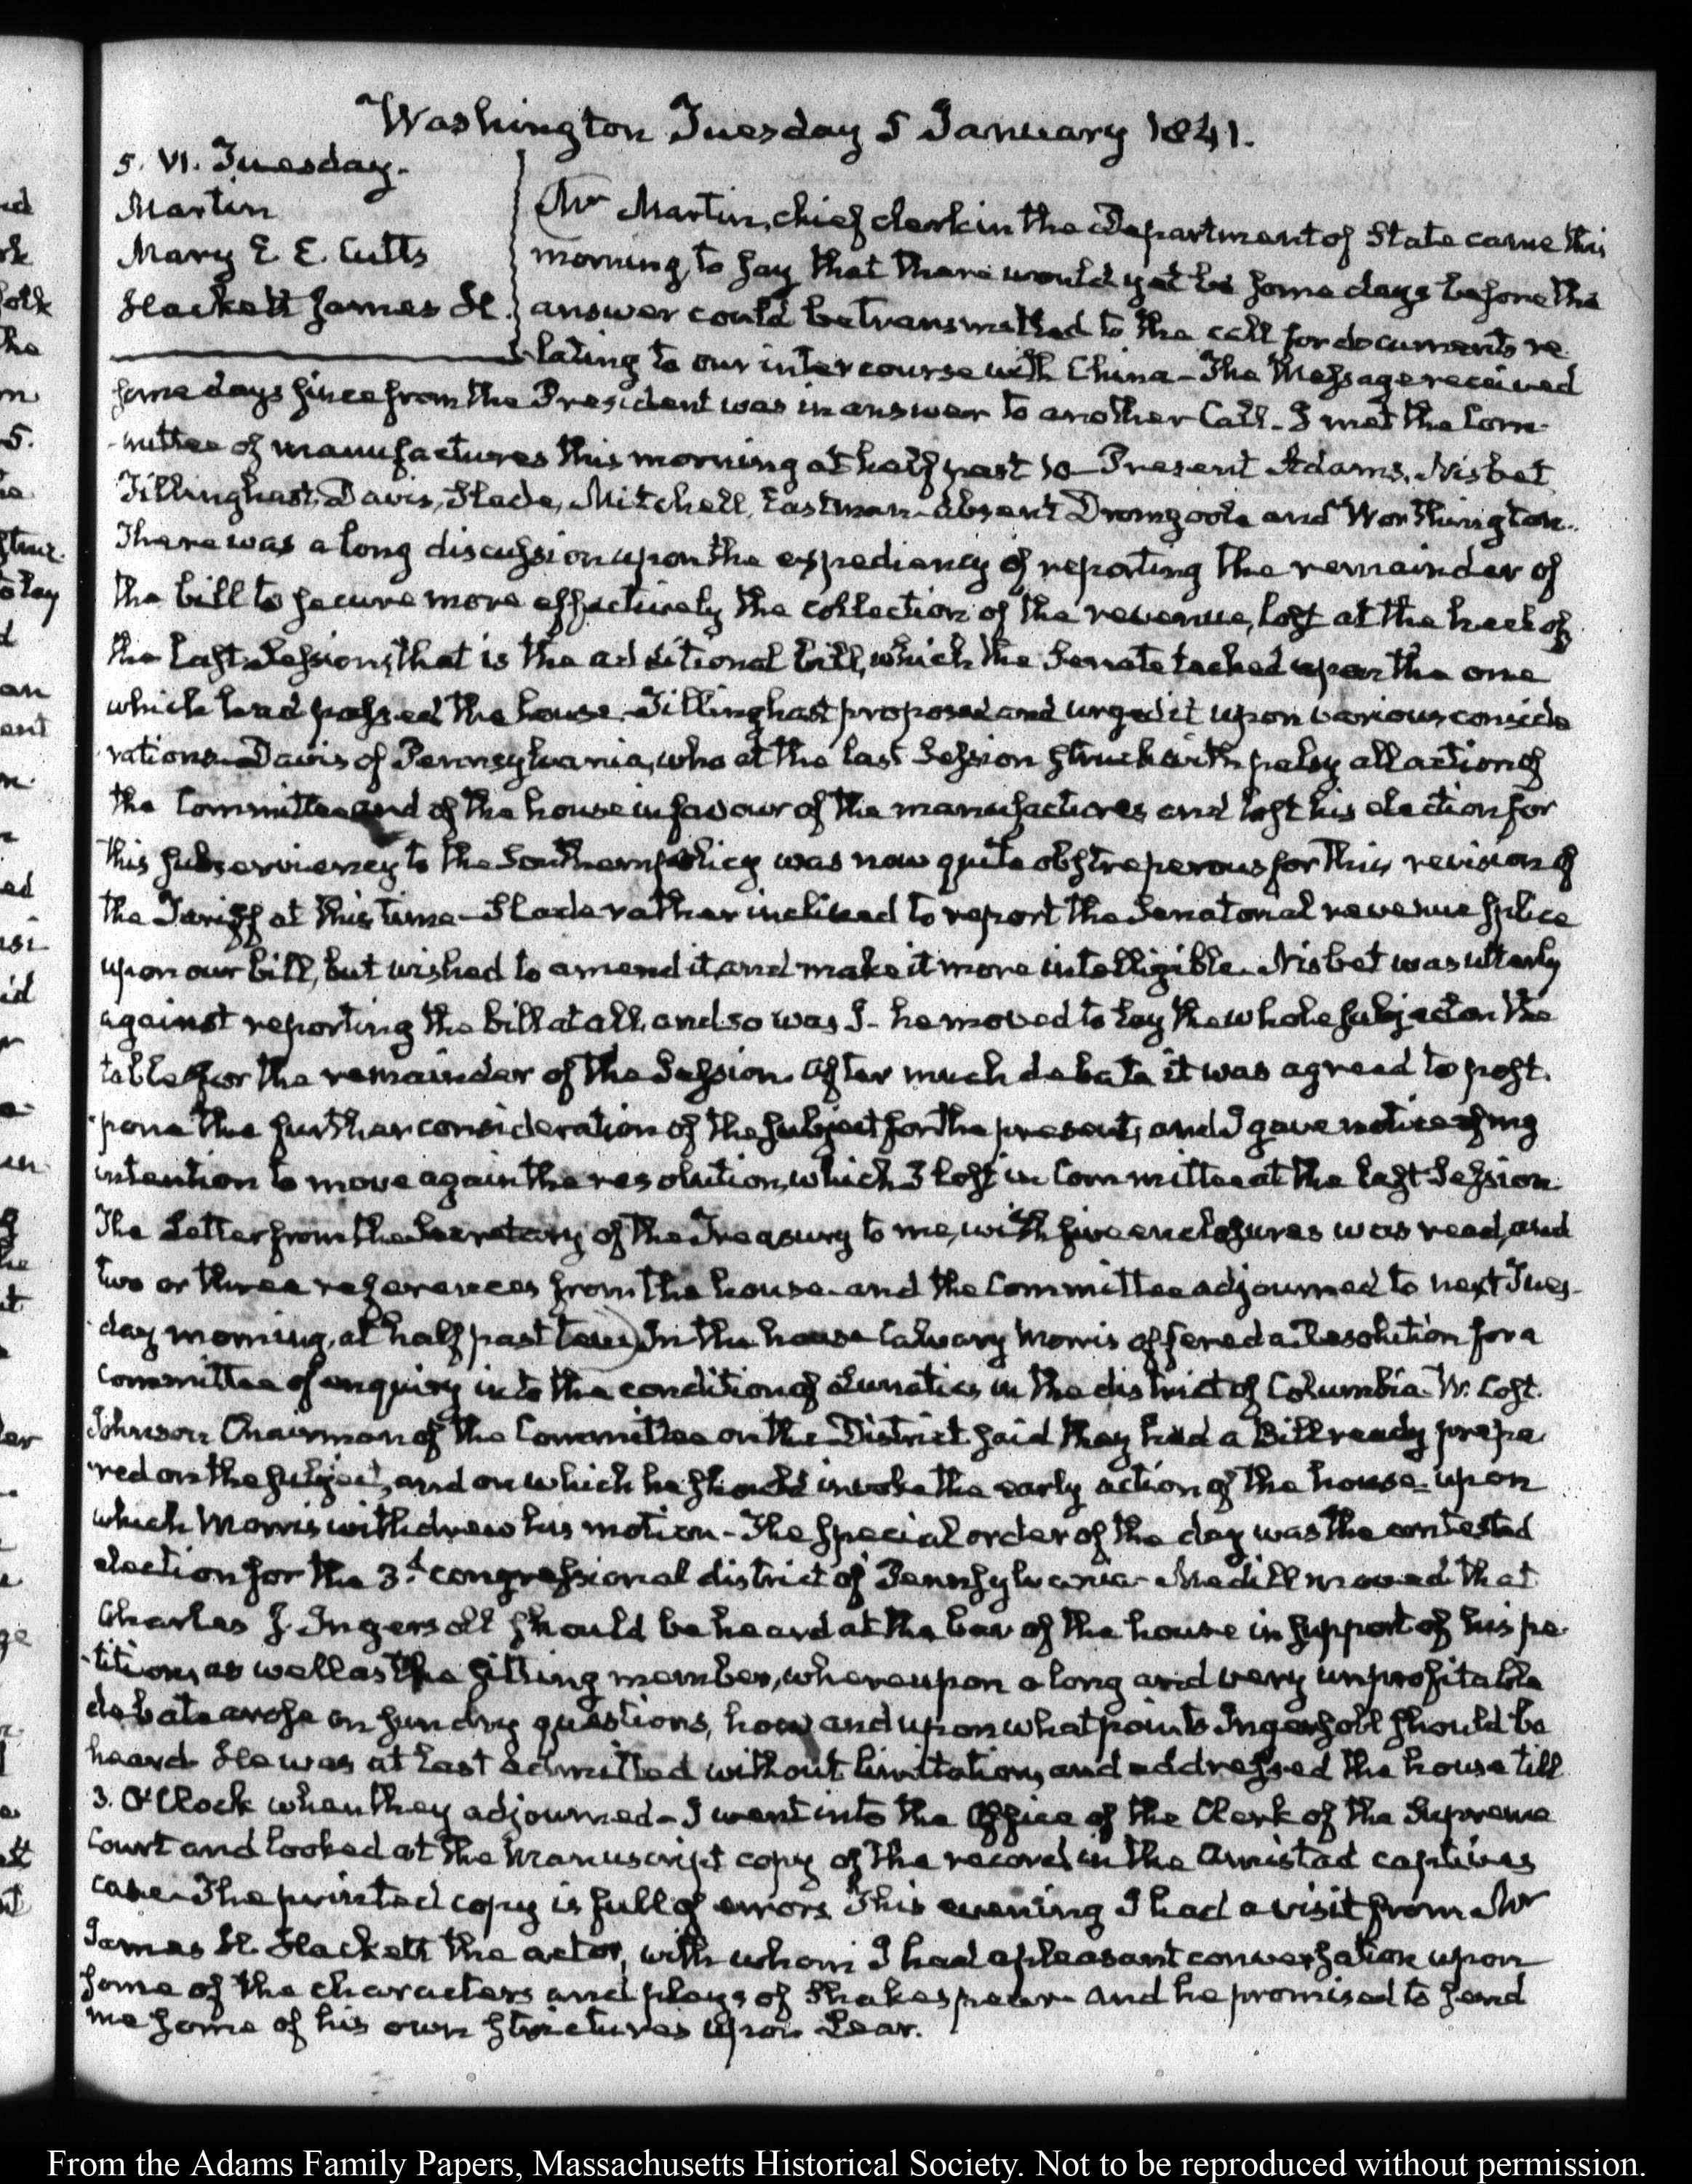 Washington Tuesday 5 January 1841.
5. VI. Tuesday.
Martin
Mary E. E. Cutts
Hackett James H.
Mr Martin, chief clerk in the Department of State came this
morning, to say that there would yet be some days before the
answer could be transmitted to the call for documents re-
lating to our intercourse with China – The Message received
some days since from the President was in answer to another Call – I met the Com-
mittee of manufactures this morning at half past 10 – Present Adams, Nisbet,
Tillinghast, Davis, Slade, Mitchell, Eastman – absent Dromgoole and Worthington.
There was a long discussion upon the expediency of reporting the remainder of
the bill to secure more effectively the collection of the revenue, lost at the heel of
the last Session, that is the additional bill, which the Senate tacked upon the one
which had passed the house. Tillinghast proposed and urged it upon various conside
rations – Davis of Pennsylvania, who at the last Session struck with palsy all action of
the Committee and of the house in favour of the manufactures and lost his election for
this subserviency to the Southern policy was now quite obstreperous for this revision of
the Tariff at this time – Slade rather inclined to report the Senatorial revenue splice
upon our bill, but wished to amend it, and make it more intelligible. Nisbet was utterly
against reporting the bill at all, and so was I – he moved to lay the whole subject on the
table for the remainder of the Session. After much debate it was agreed to post-
pone the further consideration of the subject for the present, and I gave notice of my
intention to move again the resolution, which I lost in Committee at the last Session
The Letter from the Secretary of the Treasury to me, with five enclosures was read, and
two or three references from the house – and the Committee adjourned to next Tues-
day morning, at half past ten) In the house Calvary Morris offered a Resolution for a
Committee of enquiry into the condition of Lunatics in the district of Columbia. W. Cost.
Johnson Chairman of the Committee on the District said they had a Bill ready prepa
red on the subject, and on which he should invoke the early action of the house – upon
which Morris withdrew his motion – The special order of the day was the contested
election for the 3d congressional district of Pennsylvania – Medill moved that
Charles J. Ingersoll should be heard at the bar of the house in support of his pe-
tition, as well as the sitting member, whereupon a long and very unprofitable
debate arose on sundry questions, how and upon what points Ingersoll should be
heard – He was at last admitted without limitation, and addressed the house till
3. O'Clock when they adjourned – I went into the Office of the Clerk of the Supreme
Court and looked at the Manuscript copy of the record in the Amistad captives
case – The printed copy is full of errors. This evening I had a visit from Mr
James H. Hackett the actor, with whom I had a pleasant conversation upon
some of the characters and plays of Shakespear – and he promised to send
me some of his own strictures upon Lear.
From the Adams Family Papers, Massachusetts Historical Society. Not to be reproduced without permission.